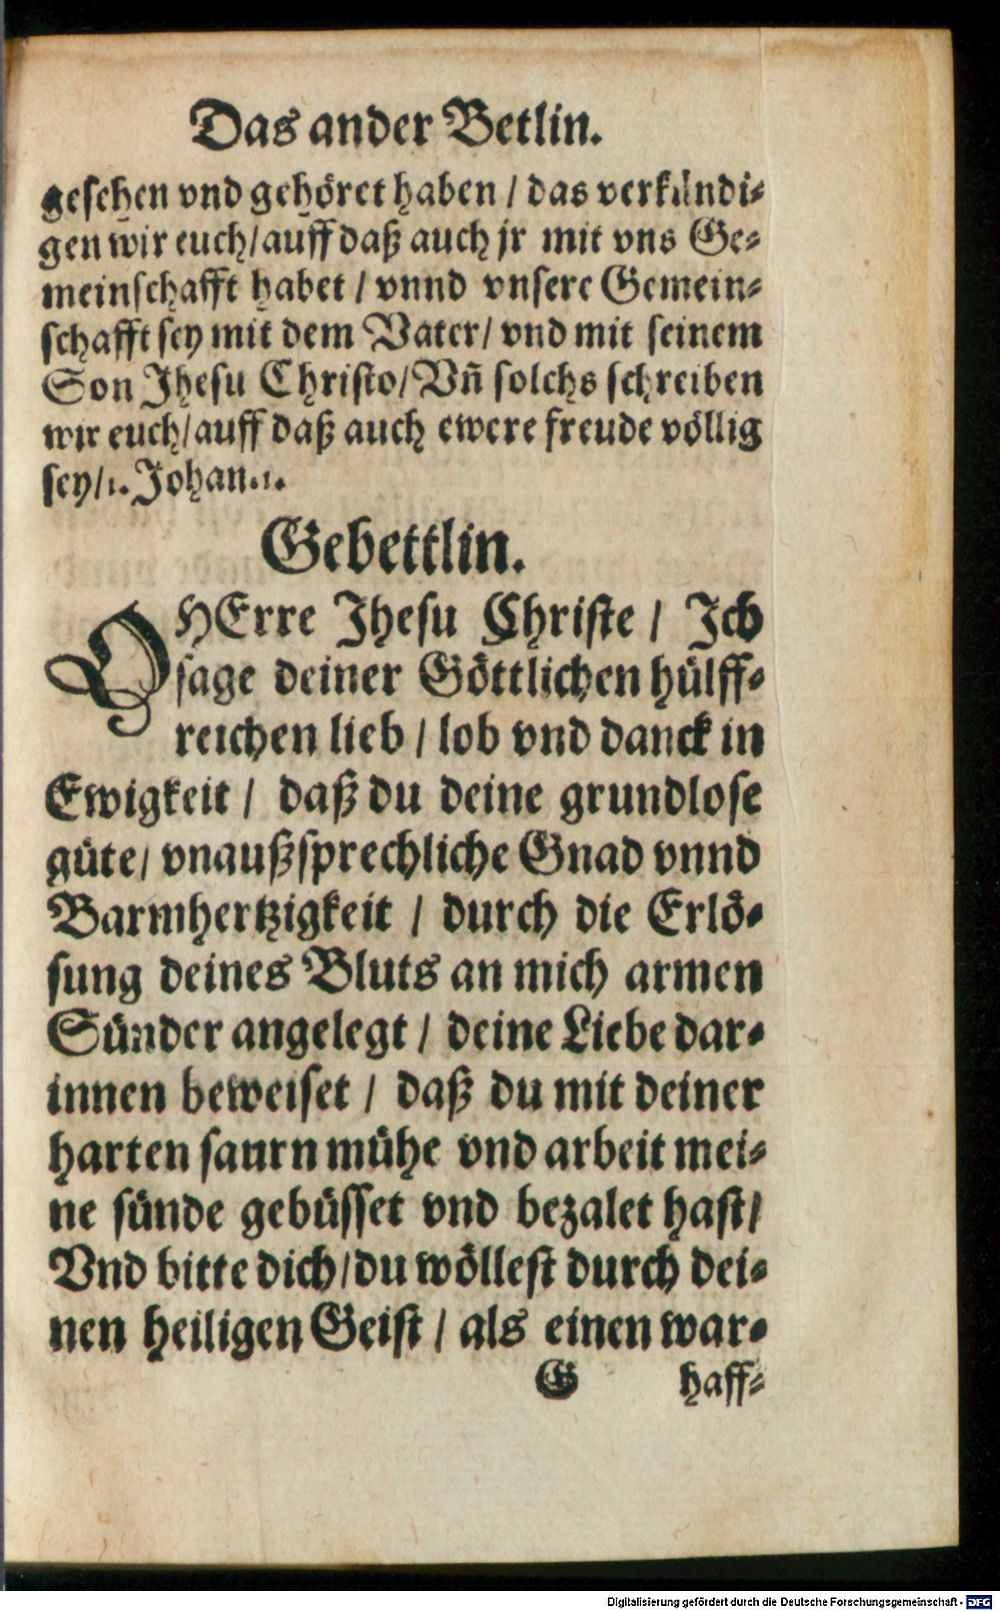 Das ander Betlin.
gesehen vnd gehöret haben / das verkündi⸗
gen wir euch / auff daß auch jr mit vns Ge⸗
meinschafft habet / vnnd vnsere Gemein⸗
schafft sey mit dem Vater / vnd mit seinem
Son Jhesu Christo / Vñ solchs schreiben
wir euch / auff daß auch ewere freude völlig
sey / 1. Johan. 1.
Gebettlin.
O HErre Jhesu Christe / Ich
sage deiner Göttlichen hülff⸗
reichen lieb / lob vnd danck in
Ewigkeit / daß du deine grundlose
güte / vnaußsprechliche Gnad vnnd
Barmhertzigkeit / durch die Erlö⸗
sung deines Bluts an mich armen
Sünder angelegt / deine Liebe dar⸗
innen beweiset / daß du mit deiner
harten saurn mühe vnd arbeit mei⸗
ne sünde gebüsset vnd bezalet hast /
Vnd bitte dich / du wöllest durch dei⸗
nen heiligen Geist / als einen war⸗
G haff⸗
Digitalisierung gefördert durch die Deutsche Forschungsgemeinschaft - DFG